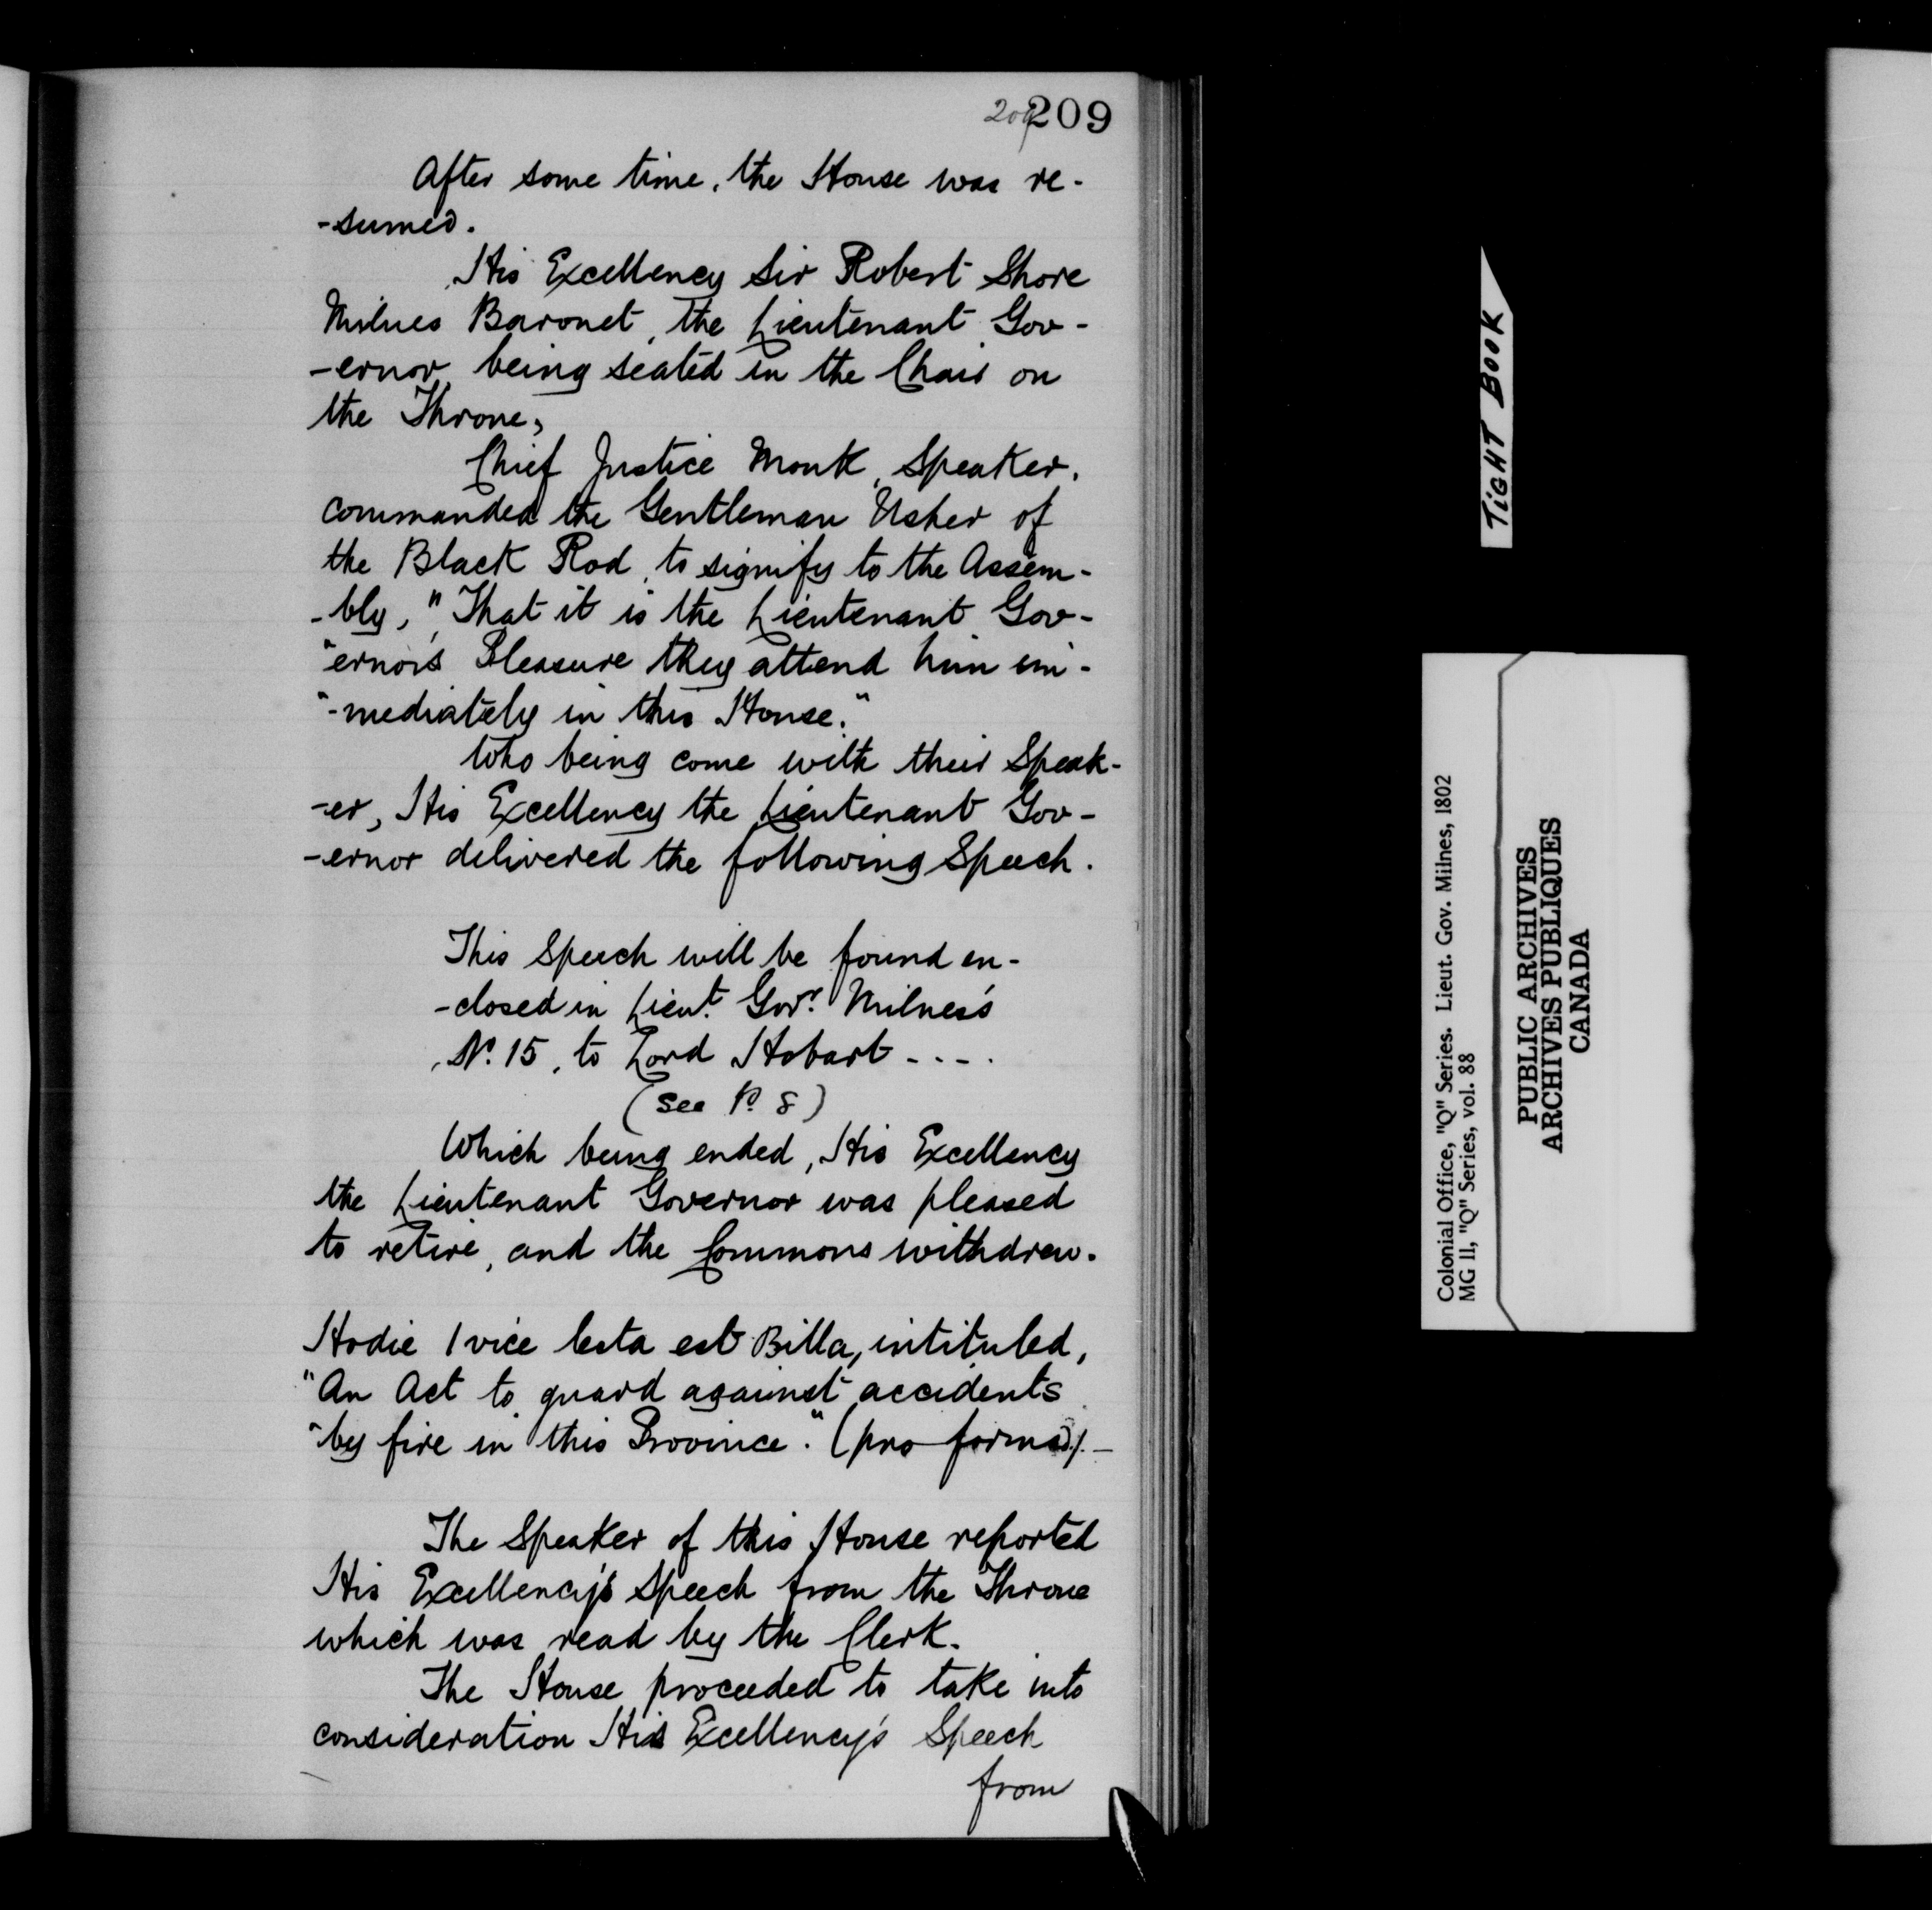 209 209
After some time, the House was re-
-sumed.
His Excellency Sir Robert Shore
Milnes Baronet, the Lieutenant Gov-
-ernor being seated in the Chair on
the Throne,
Chief Justice Monk, Speaker,
commanded the Gentleman Usher of
the Black Rod, to signify to the Assem-
-bly, "That it is the Lieutenant Gov-
"ernor's Pleasure they attend him im-
"-mediately in this House."
Who being come with their Speak-
-er, His Excellency the Lieutenant Gov-
-ernor delivered the following Speech.
This Speech will be found en-
-closed in Lieut. Govr. Milnes's
No. 15, to Lord Hobart - - - -
(See P. 8)
Which being ended, His Excellency
the Lieutenant Governor was pleased
to retire, and the Commons withdrew.
Hodie 1 vice lecta est Billa, intituled,
"An Act to guard against accidents
"by fire in this Province." (pro forma)/. -
The Speaker of this House reported
His Excellency's Speech from the Throne
which was read by the Clerk.
The House proceeded to take into
consideration His Excellency's Speech
from
TIGHT BOOK
Colonial Office, "Q" Series. Lieut. Gov. Milnes, 1802
MG 11, "Q" Series, vol. 88
PUBLIC ARCHIVES
ARCHIVES PUBLIQUES
CANADA